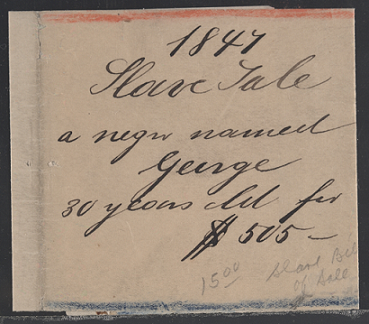 1847
Slave Sale
a negro named
George
30 years old for
$505—
1500
Slave Bill
of Sale